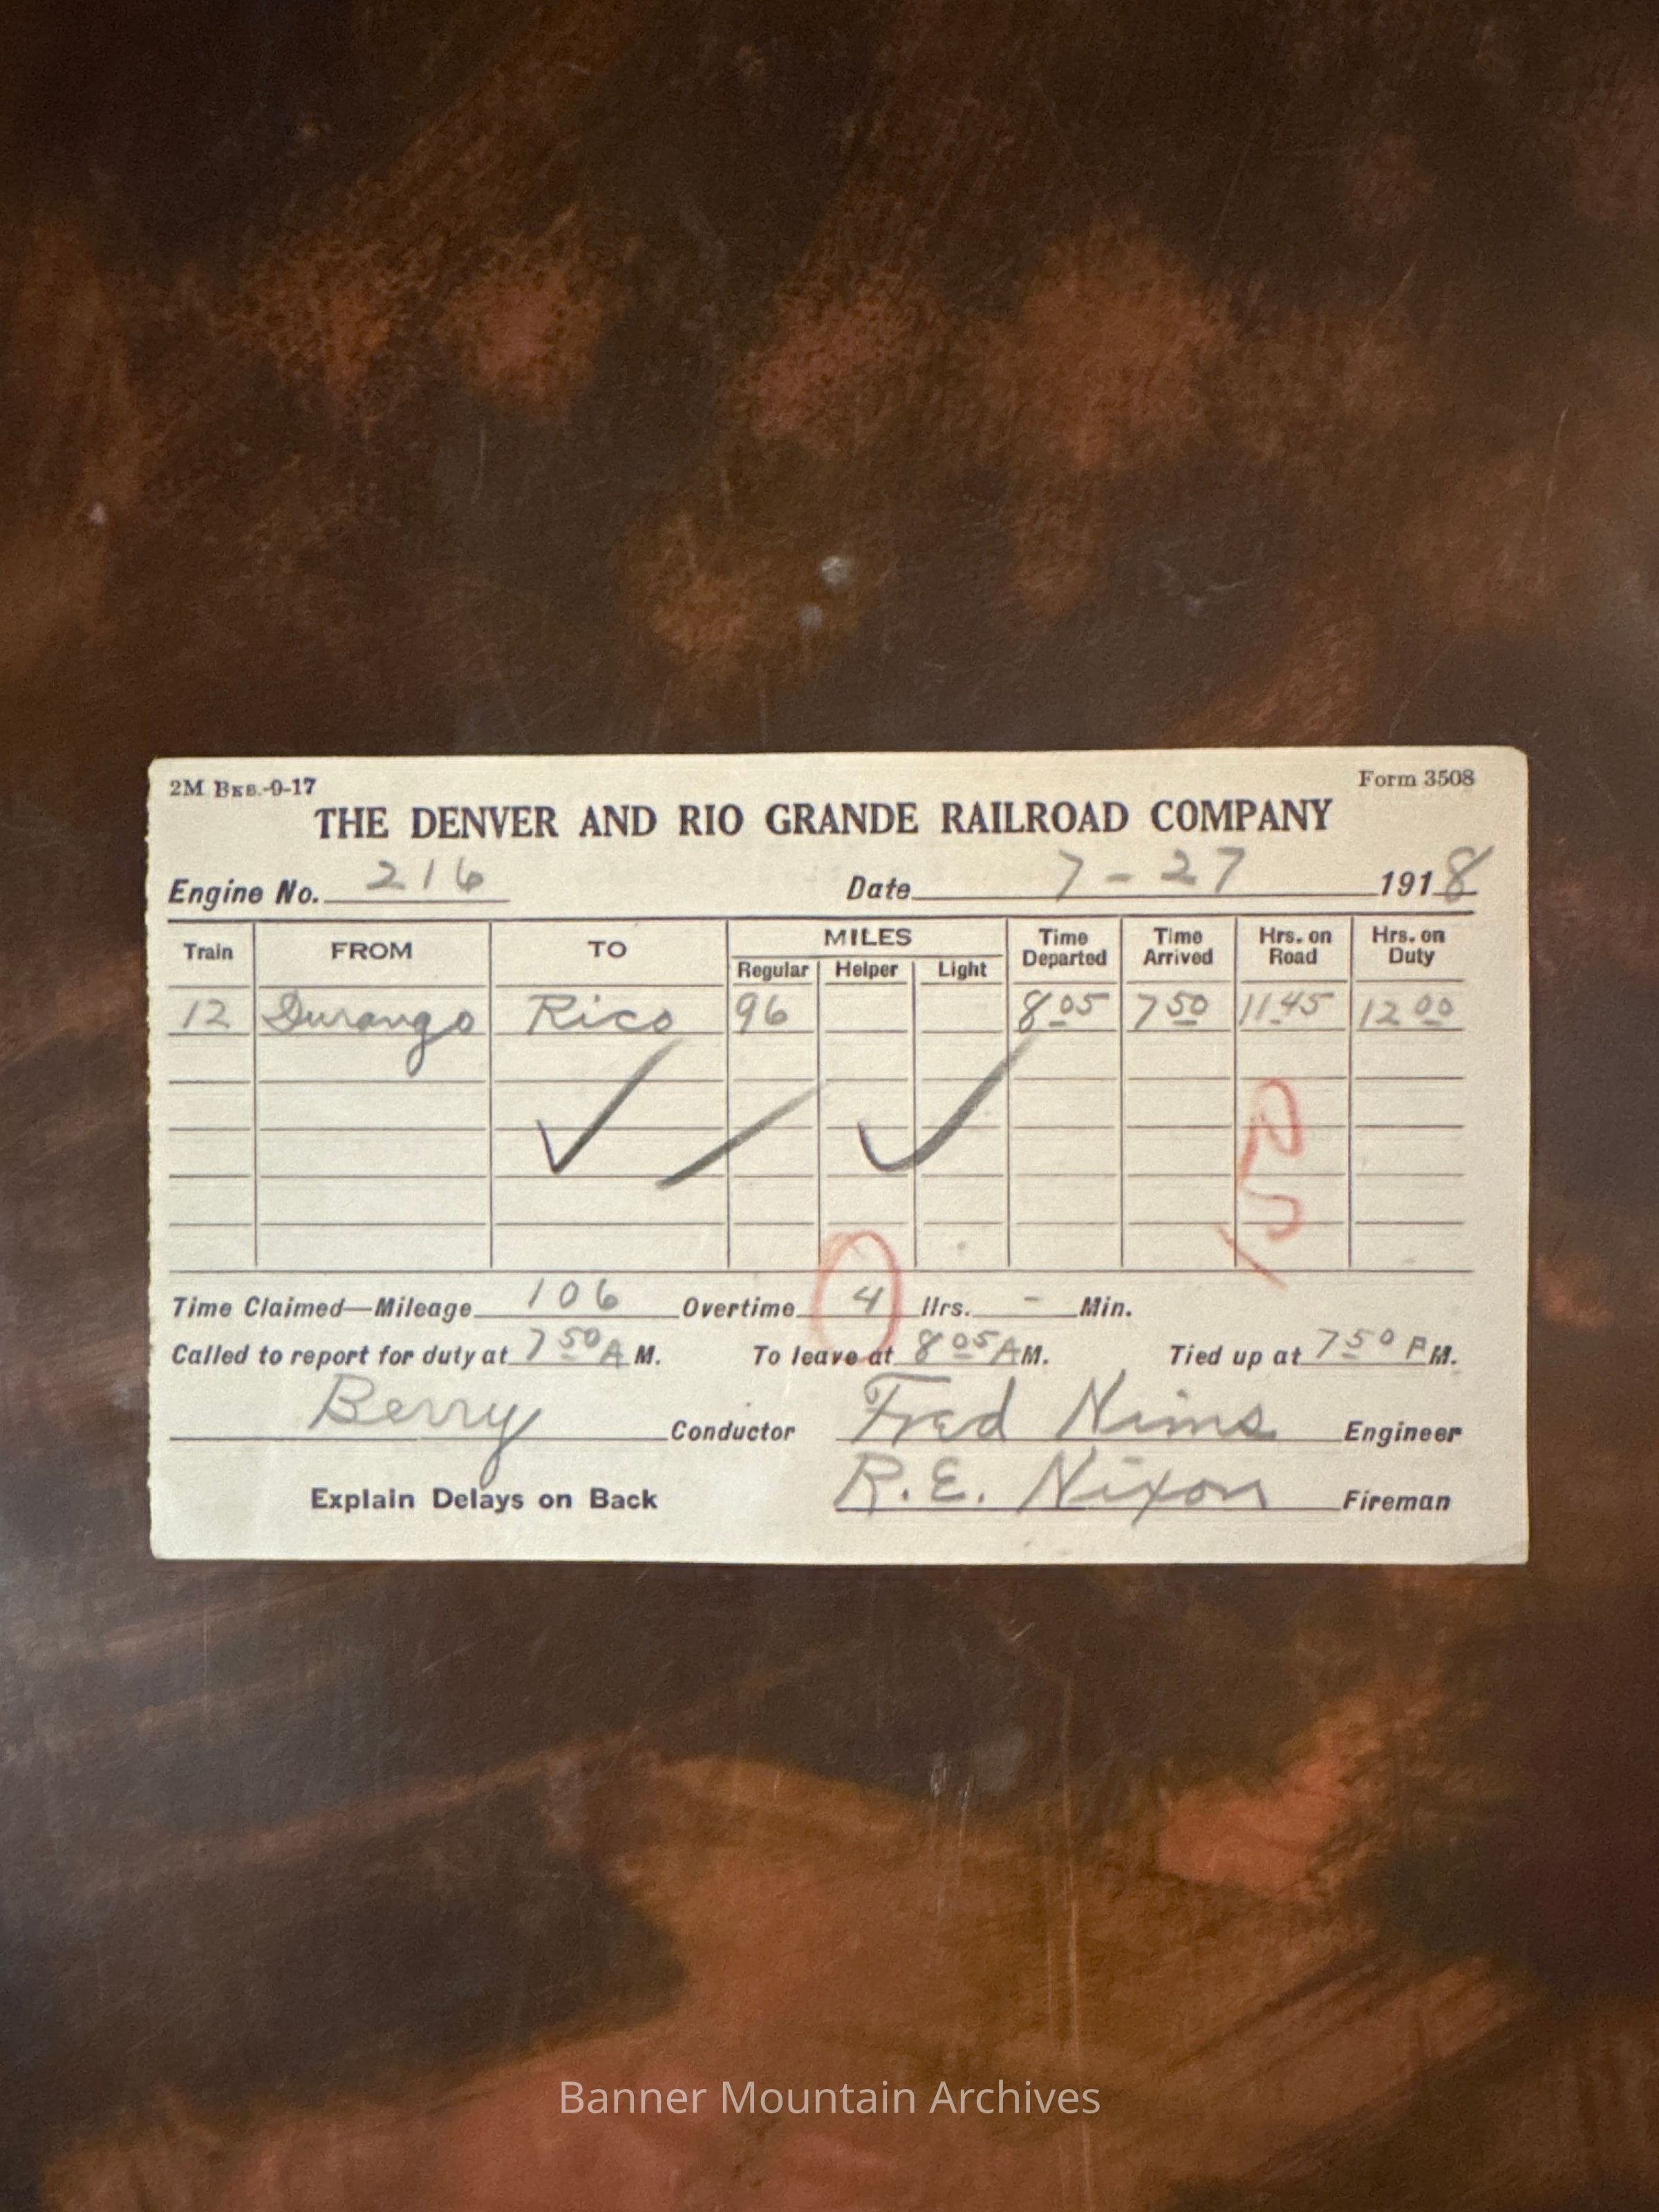 2M Bks.-9-17 Form 3508
THE DENVER AND RIO GRANDE RAILROAD COMPANY
Engine No. 216 Date 7 - 27 1918
Train FROM TO MILES Time Departed Time Arrived Hrs. on Road Hrs. on Duty
Regular Helper Light
12 Durango Rico 96 8 05 7 50 11 45 12 00
Time Claimed—Mileage 106 Overtime 4 Hrs. - Min.
Called to report for duty at 7 50 A M. To leave at 8 05 A M. Tied up at 7 50 P M.
Berry Conductor Fred Nims Engineer
Explain Delays on Back R.E. Nixon Fireman
Banner Mountain Archives